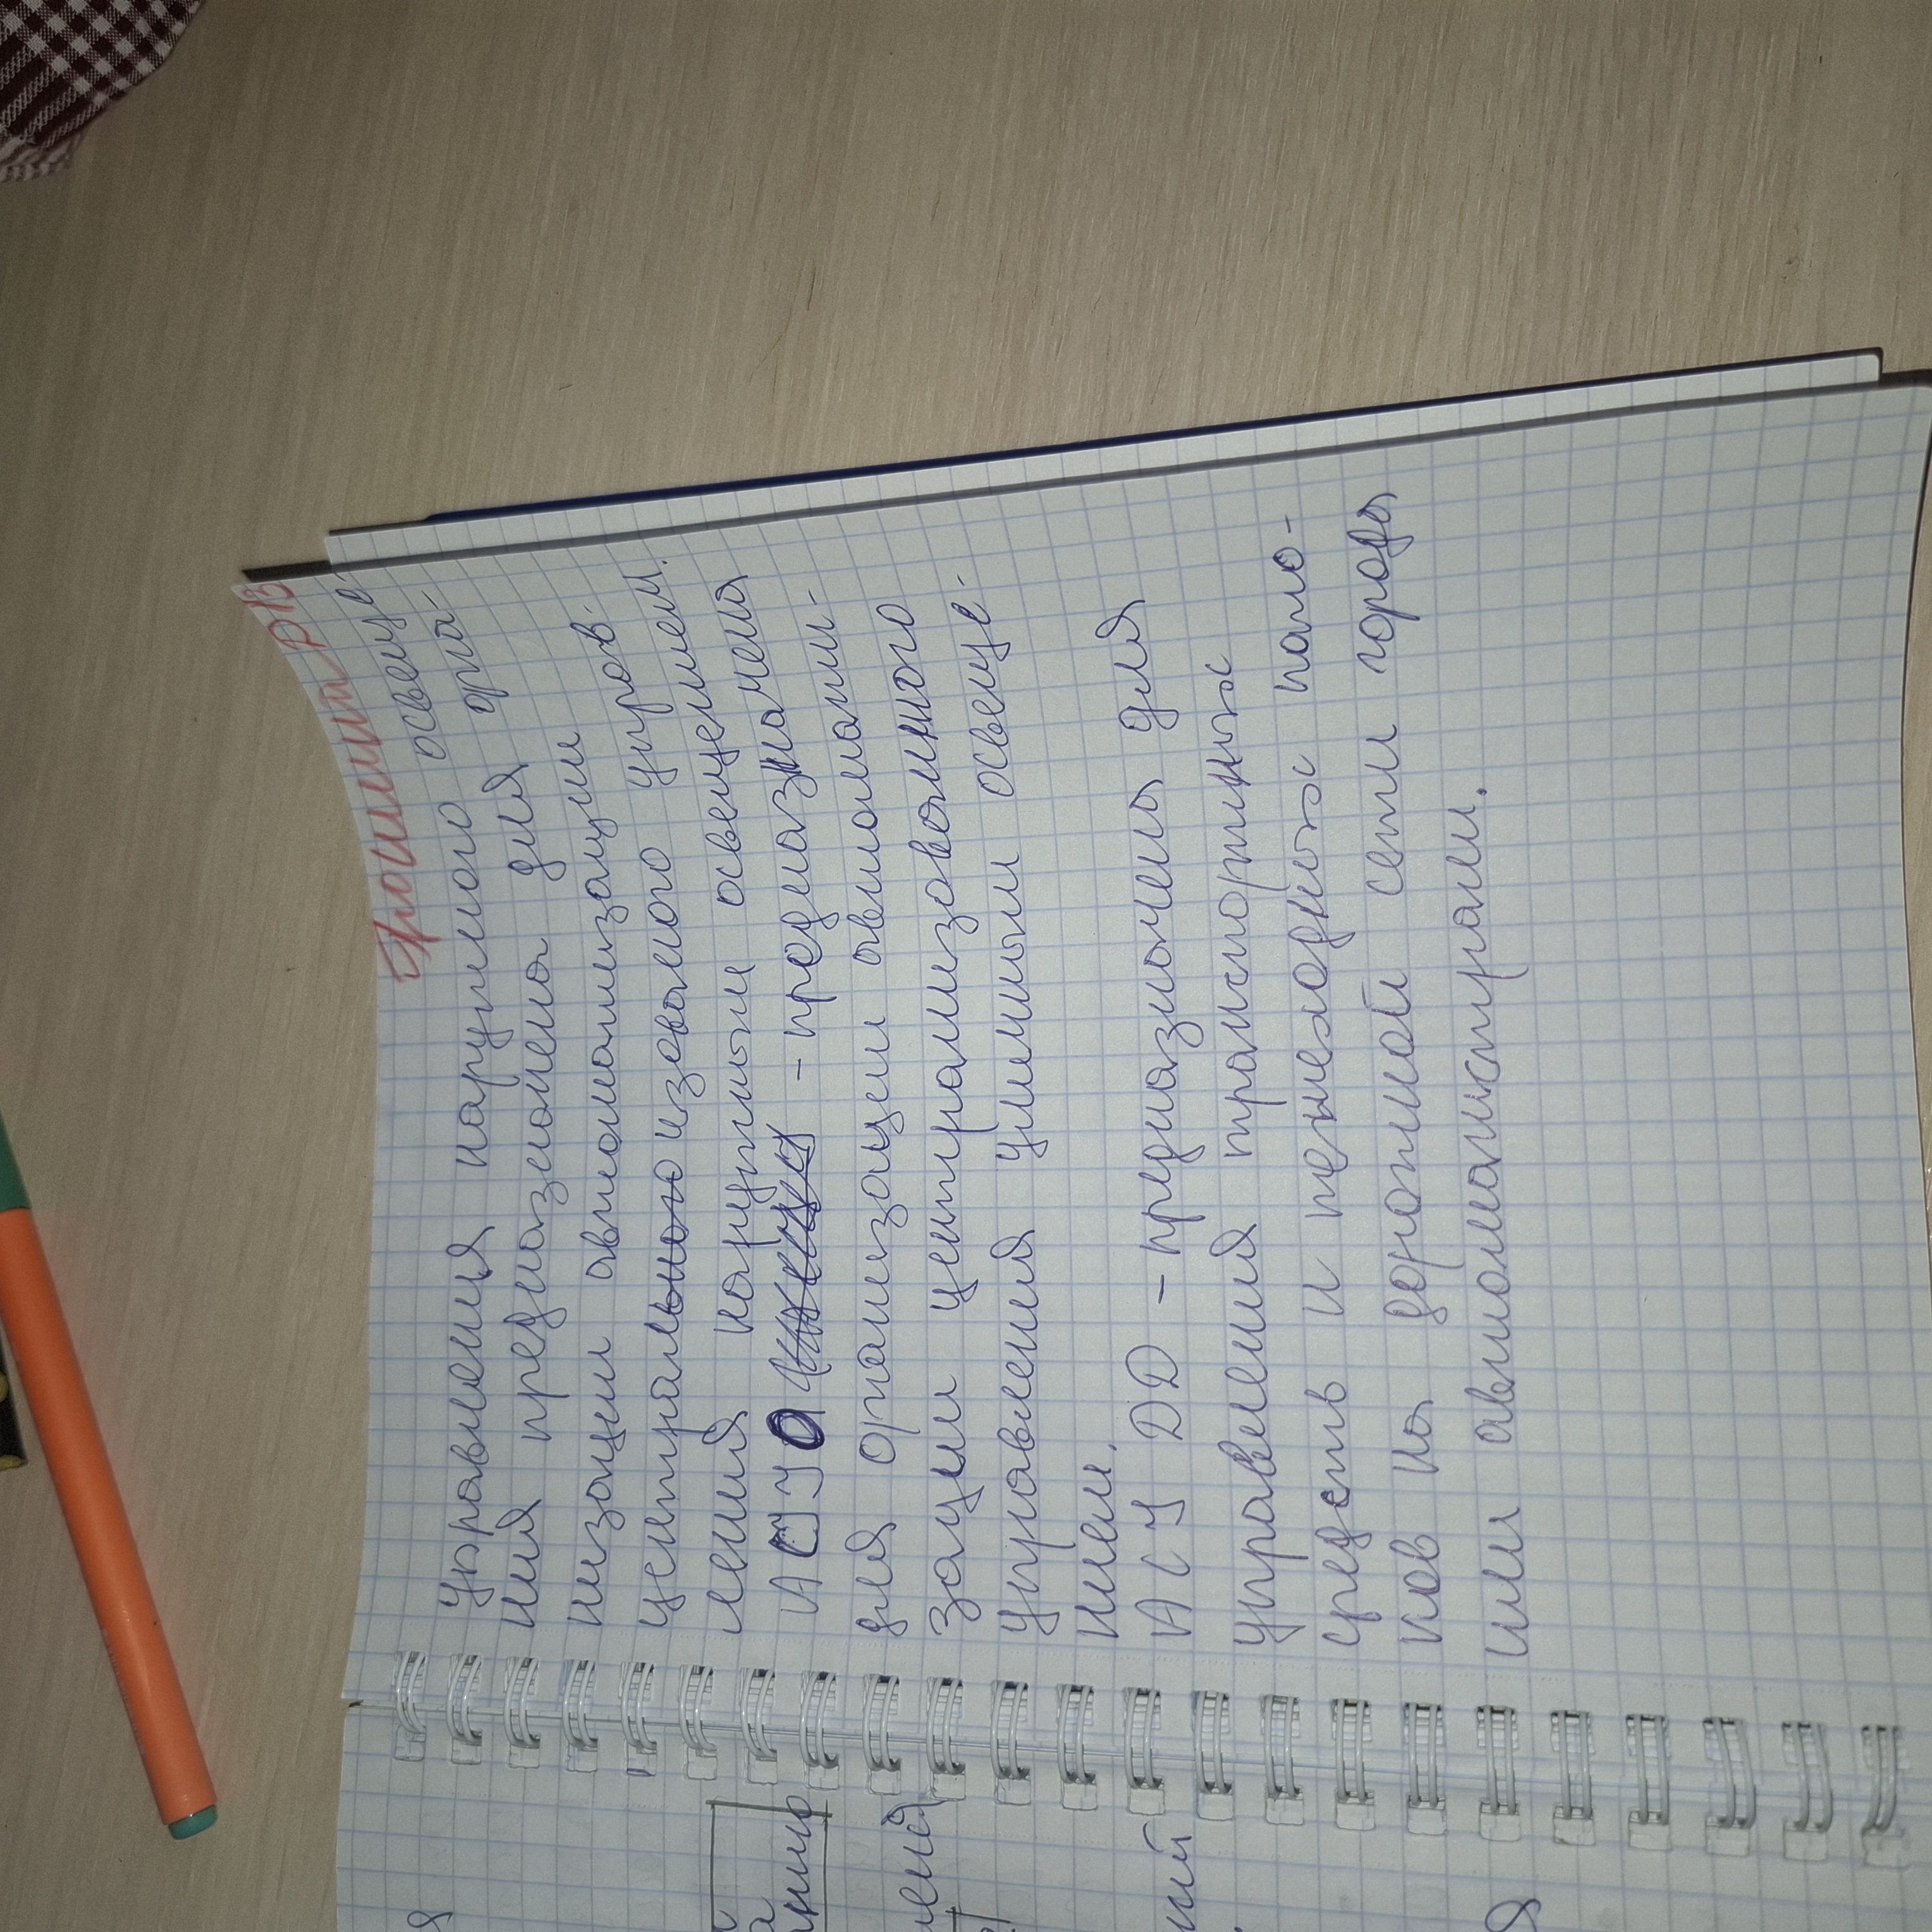 Прошита РВ
Управления наружного освеще-
ния предназначена для орга-
низации автоматизации
централизованого управ-
ления наружным освещением.
АСУО - предназначена
для организации автомати-
зации централизованного
управления уличным освеще-
нием.
АСУ DD - предназначена для
управления транспортных
средств и пешеходных пото-
ков на дорожной сети города
или автомагистрали.